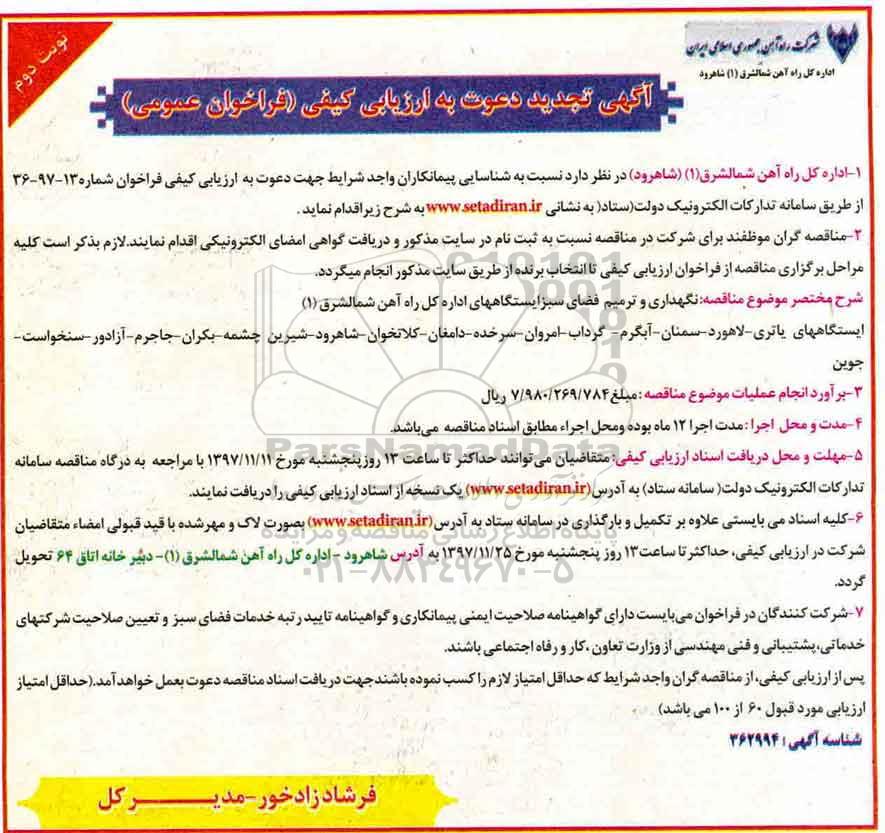 نوبت دوم
شرکت راه آهن جمهوری اسلامی ایران
اداره کل راه آهن شمالشرق (۱) شاهرود
آگهی تجدید دعوت به ارزیابی کیفی (فراخوان عمومی)
۱-اداره کل راه آهن شمالشرق(۱) (شاهرود) در نظر دارد نسبت به شناسایی پیمانکاران واجد شرایط جهت دعوت به ارزیابی کیفی فراخوان شماره۱۳-۹۷-۳۶
از طریق سامانه تدارکات الکترونیک دولت(ستاد( به نشانی www.setadiran.ir به شرح زیراقدام نماید .
۲-مناقصه گران موظفند برای شرکت در مناقصه نسبت به ثبت نام در سایت مذکور و دریافت گواهی امضای الکترونیکی اقدام نمایند.لازم بذکر است کلیه
مراحل برگزاری مناقصه از فراخوان ارزیابی کیفی تا انتخاب برنده از طریق سایت مذکور انجام میگردد.
شرح مختصر موضوع مناقصه:نگهداری و ترمیم فضای سبزایستگاههای اداره کل راه آهن شمالشرق (۱)
ایستگاههای یاتری-لاهورد-سمنان-آبگرم- گرداب-امروان-سرخده-دامغان-کلاتخوان-شاهرود-شیرین چشمه-بکران-جاجرم-آزادور-سنخواست-
جوین
۳-برآورد انجام عملیات موضوع مناقصه :مبلغ۷/۹۸۰/۲۶۹/۷۸۴ ریال
۴-مدت و محل اجرا : مدت اجرا ۱۲ ماه بوده ومحل اجراء مطابق اسناد مناقصه می‌باشد.
۵-مهلت و محل دریافت اسناد ارزیابی کیفی: متقاضیان می‌توانند حداکثر تا ساعت ۱۳ روزپنجشنبه مورخ ۱۳۹۷/۱۱/۱۱ با مراجعه به درگاه مناقصه سامانه
تدارکات الکترونیک دولت( سامانه ستاد) به آدرس(www.setadiran.ir) یک نسخه از اسناد ارزیابی کیفی را دریافت نمایند.
۶-کلیه اسناد می بایستی علاوه بر تکمیل و بارگذاری در سامانه ستاد به آدرس(www.setadiran.ir) بصورت لاک و مهرشده با قید قبولی امضاء متقاضیان
شرکت در ارزیابی کیفی، حداکثرتا ساعت۱۳ روز پنجشنبه مورخ ۱۳۹۷/۱۱/۲۵ به آدرس شاهرود - اداره کل راه آهن شمالشرق (۱)- دبیر خانه اتاق ۶۴ تحویل
گردد.
۷-شرکت کنندگان در فراخوان می‌بایست دارای گواهینامه صلاحیت ایمنی پیمانکاری و گواهینامه تایید رتبه خدمات فضای سبز و تعیین صلاحیت شرکتهای
خدماتی،پشتیبانی و فنی مهندسی از وزارت تعاون ،کار و رفاه اجتماعی باشند.
پس از ارزیابی کیفی، از مناقصه گران واجد شرایط که حداقل امتیاز لازم را کسب نموده باشندجهت دریافت اسناد مناقصه دعوت بعمل خواهد آمد.(حداقل امتیاز
ارزیابی مورد قبول ۶۰ از ۱۰۰ می باشد)
شناسه آگهی : ۳۶۲۹۹۴
فرشاد زادخور-مدیر کل
ParsNamadData
پایگاه اطلاع رسانی مناقصه و مزایده
۰۲۱-۸۸۳۴۹۶۷۰-۵